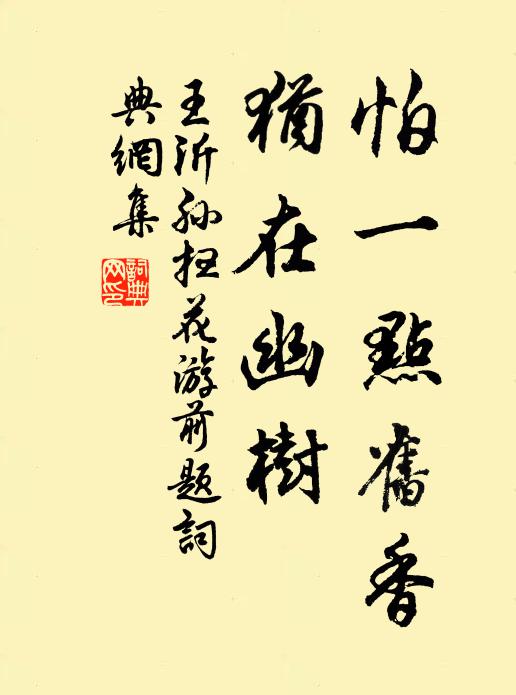 怕一點舊香
猶在幽樹
王沂孫掃花游前題詞
典網集
詞典
网印